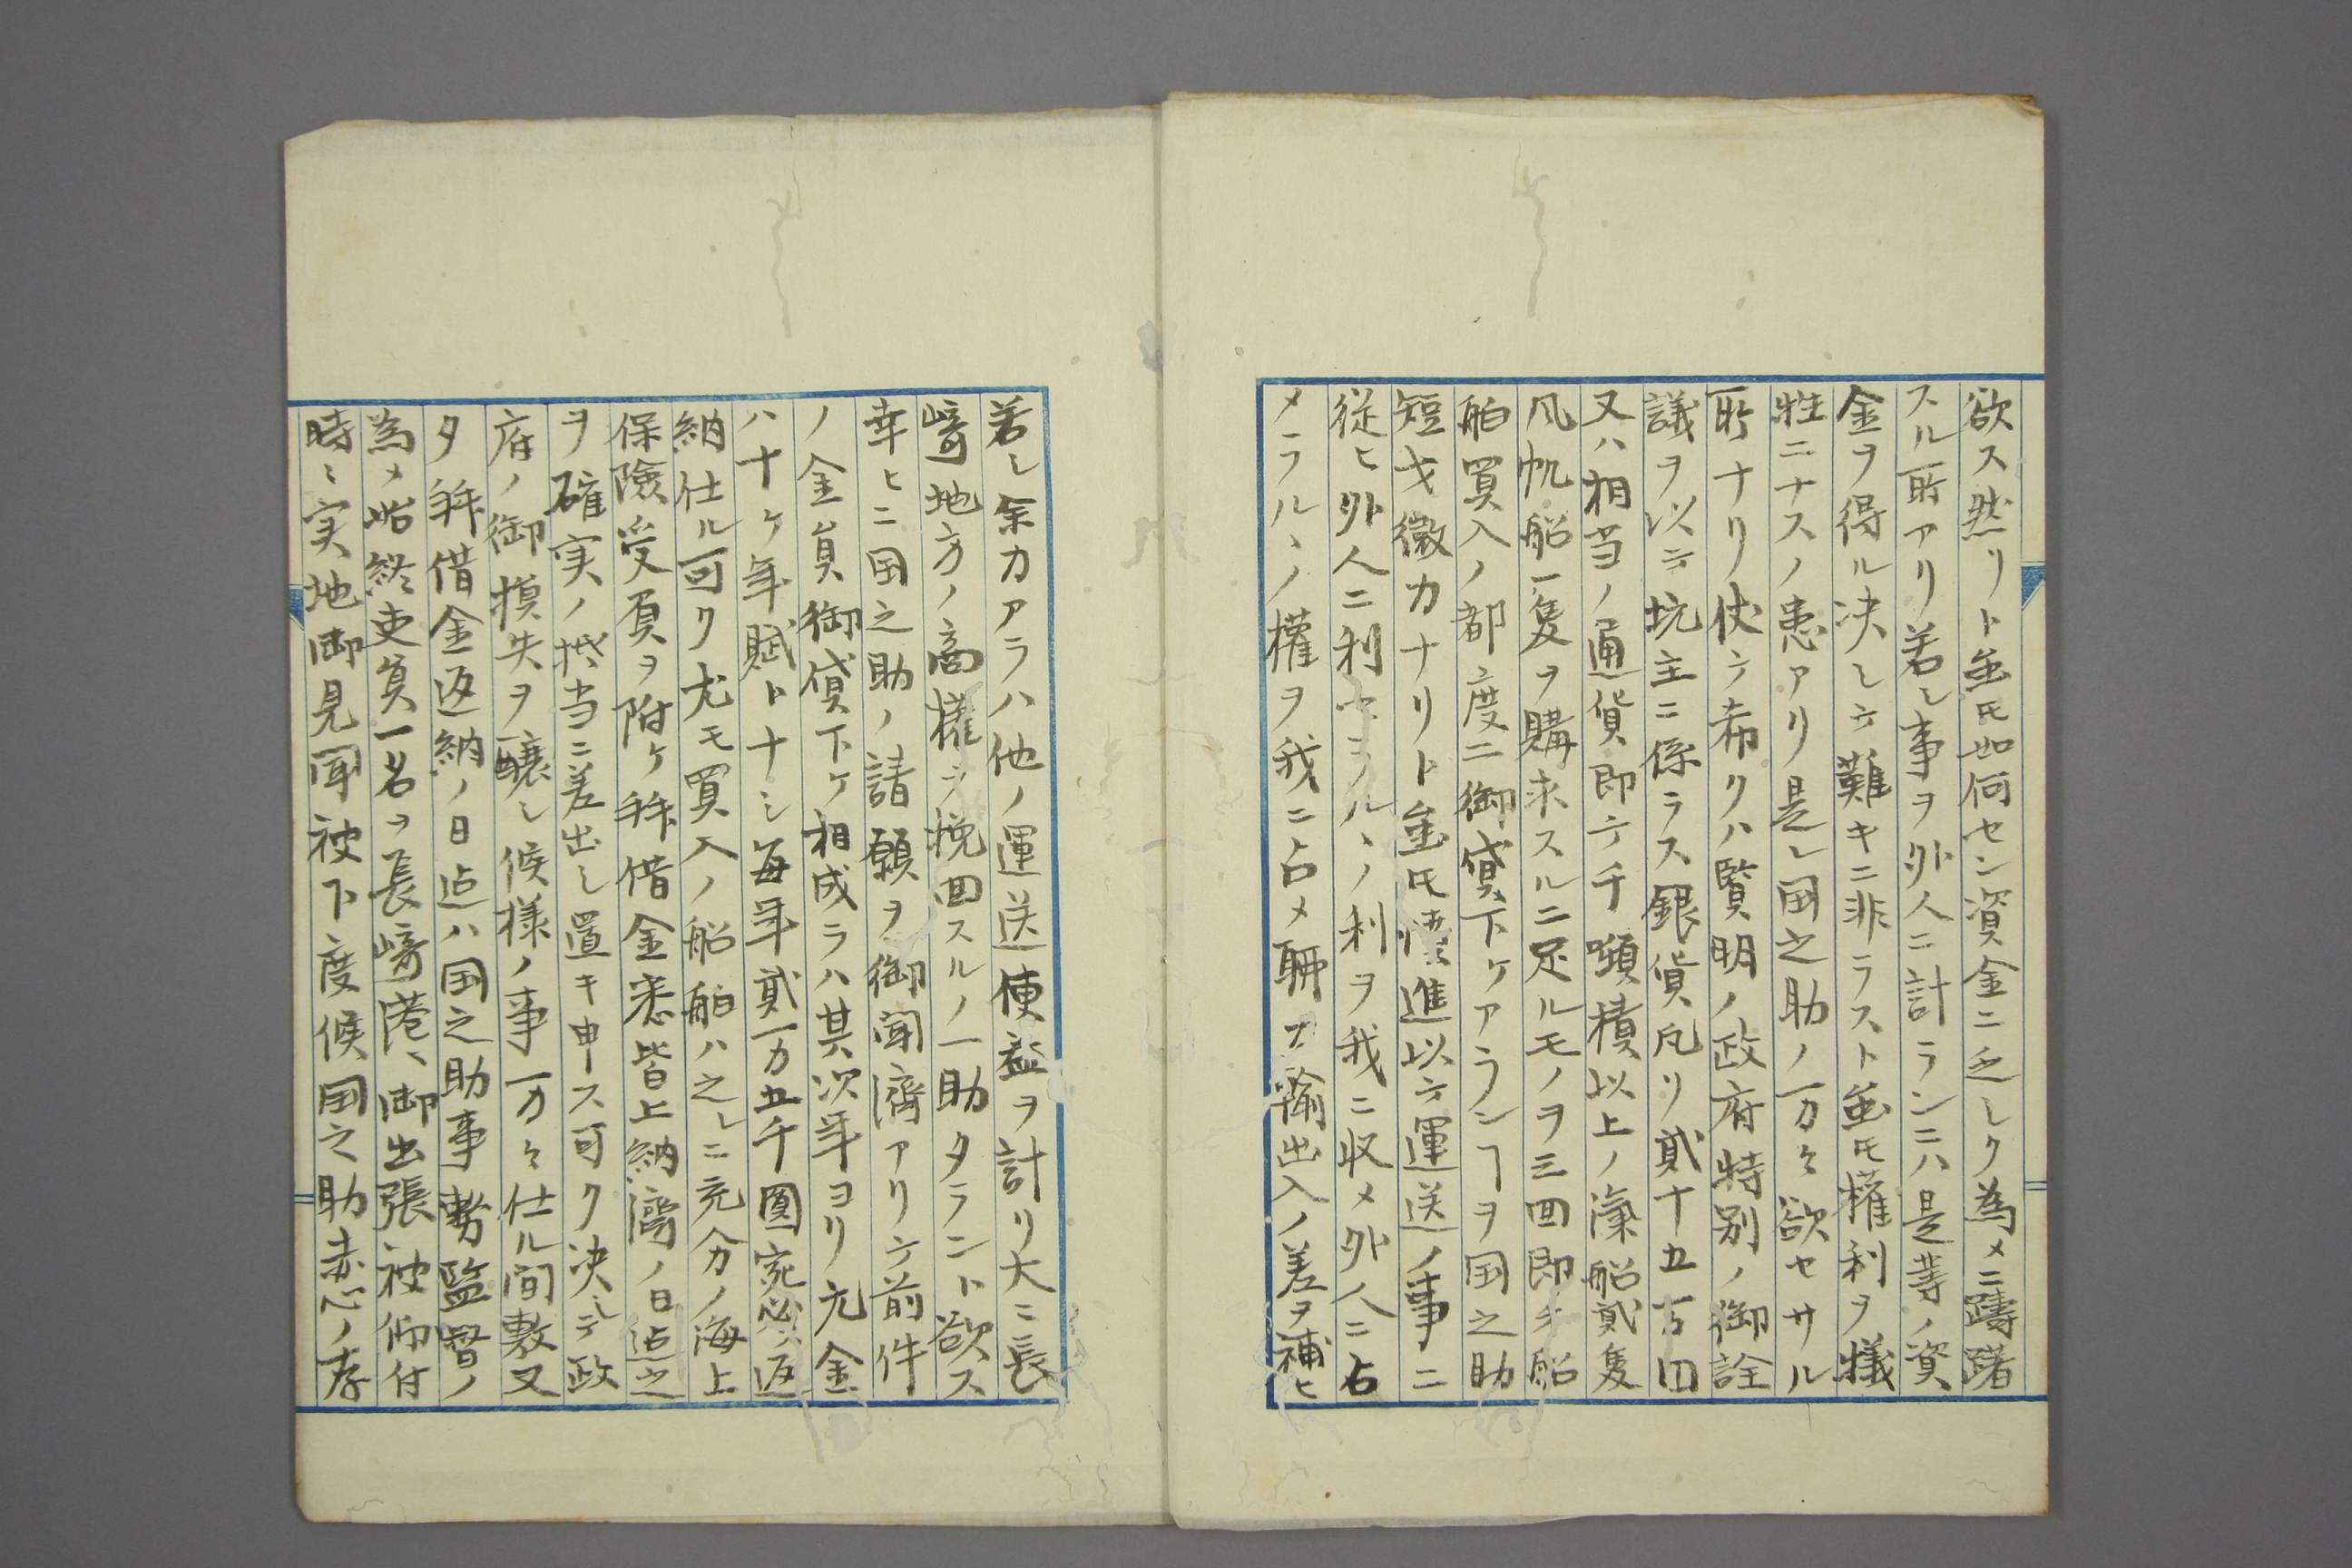 欲ス然リト雖𪜈如何セン資金ニ乏シク為メニ躊躇
スル所アリ若シ事ヲ外人ニ計ランニハ是等ノ資
金ヲ得ル决シテ難キニ非ラスト雖𪜈權利ヲ犠
牲ニナスノ患アリ是レ国之助ノ万々欲セサル
所ナリ伏テ希クハ賢明ノ政府特别ノ御詮
議ヲ以テ坑主ニ係ラス銀貨凡リ貳十五万円
又ハ相当ノ通貨即テ千噸積以上ノ滊船貳隻
凬帆船一隻ヲ購求スルニ足ルモノヲ三回即チ船
舶買入ノ都度ニ御貸下ケアランヿヲ国之助
短才微力ナリト雖𪜈漕進以テ運送ノ事ニ
従ヒ外人ニ利セラルヽノ利ヲ我ニ収メ外人ニ占
メラルヽノ權ヲ我ニ占メ聊カ輸出入ノ差ヲ補ヒ
若シ余力アラハ他ノ運送便益ヲ計リ大ニ長
﨑地方ノ商權ヲ挽回スルノ一助タラント欲ス
幸ヒニ国之助ノ請願ヲ御聞濟アリテ前件
ノ金員御貸下ケ相成ラハ其次年ヨリ元金
ハ十ケ年賦トナシ毎年貳万五千圓宛必ス返
納仕ル可ク尤モ買入ノ船舶ハ之レニ充分ノ海上
保険受負ヲ附ケ拜借金悉皆上納濟ノ日迠之
ヲ確実ノ抵当ニ差出シ置キ申ス可ク决シテ政
府ノ御損失ヲ醸シ候様ノ事万々仕ル間敷又
タ拜借金返納ノ日迠ハ国之助事務監督ノ
為メ始終吏員一名ヲ長﨑港ヘ御出張被仰付
時々実地御見聞被下度候国之助赤心ノ存